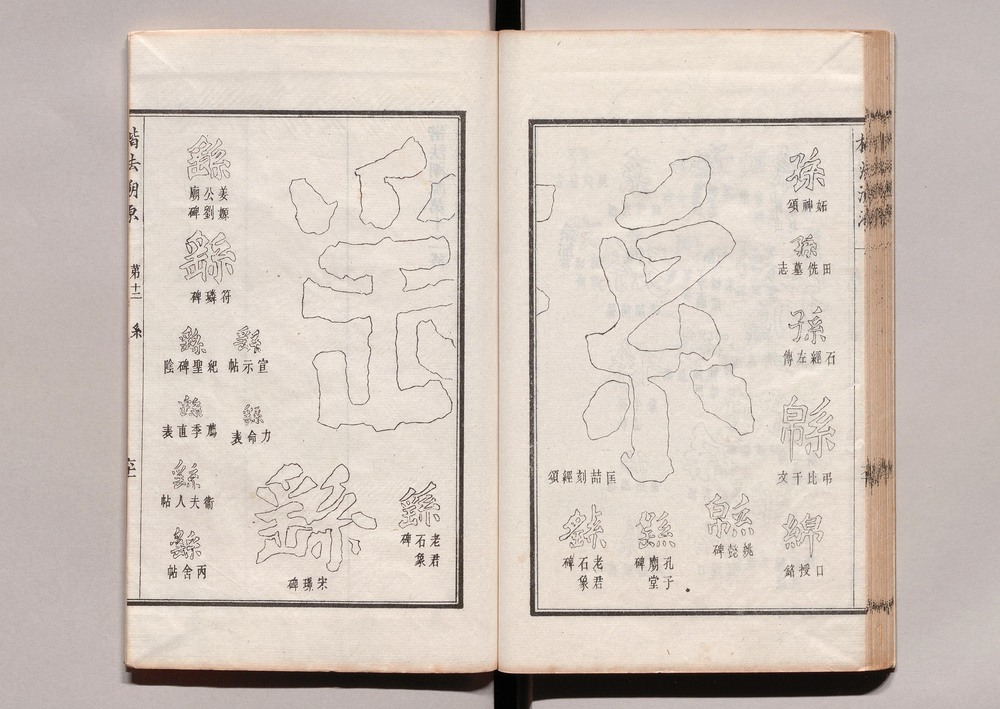 孫
妬神頌
孫
田侁墓志
孫
石經左傳
緜
弔比干文
綿
口授銘
緜
姚懿碑
繇
孔子廟堂
繇
老君石象碑
匡喆刻經頌
繇
老君石象碑
繇
宋璟碑
繇
宣示帖
繇
力命表
繇
姜嫄公劉廟碑
繇
符璘碑
繇
紀聖碑陰
繇
薦季直表
繇
衞夫人帖
繇
丙舍帖
楷法溯原
第十二
糸